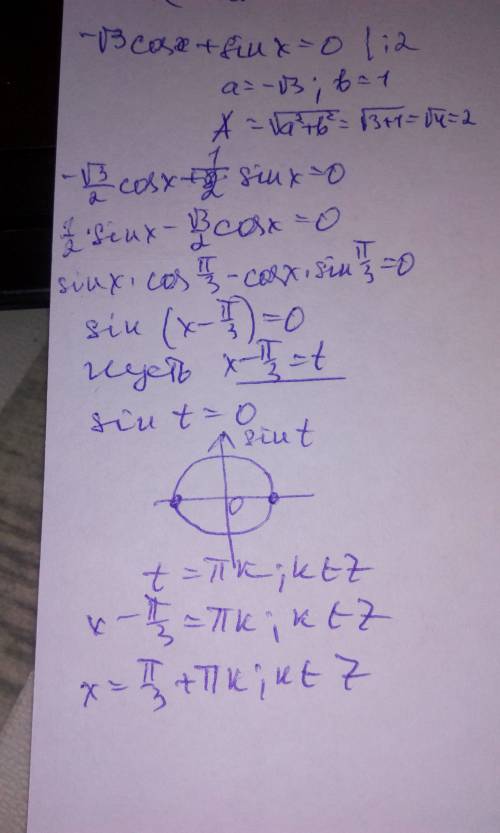 -√3 cosx + sin x = 0 | :2
a = -√3 ; b = 1
A = √a²+b² = √3+1 = √4 = 2
-√3/2 cosx + 1/2 sin x = 0
1/2 · sin x - √3/2 cosx = 0
sin x · cos π/3 - cosx · sin π/3 = 0
sin (x - π/3) = 0
пусть x - π/3 = t
sin t = 0
sin t
0
t = πk ; k ∈ Z
x - π/3 = πk ; k ∈ Z
x = π/3 + πk ; k ∈ Z